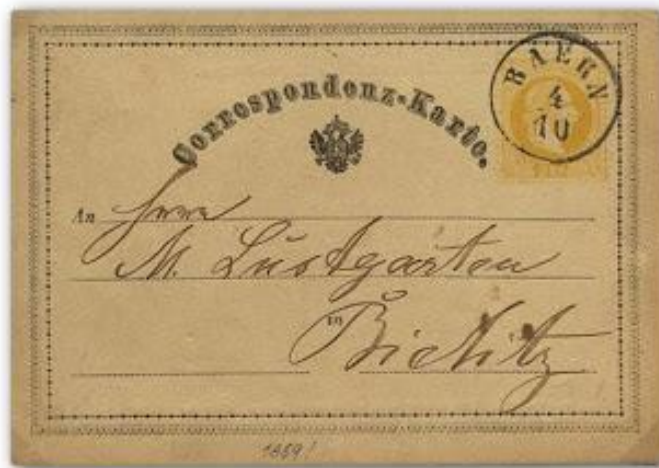 Correspondenz-Karte.
BAERN
4
10
An Herrn
M. Lustgarten
in Bielitz
1869!